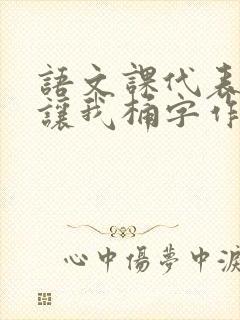 語文課代表
讓我桶字作
心中傷夢中淚